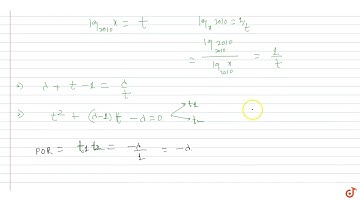 log_2010 x = t
log_x 2010 = 1/t
= log_2010 2010 / log_2010 x = 1/t
⇒) λ + t - 1 = λ/t
⇒) t² + (λ-1)t - λ = 0 t1 t2
POR = t1 t2 = -λ/1 = -λ